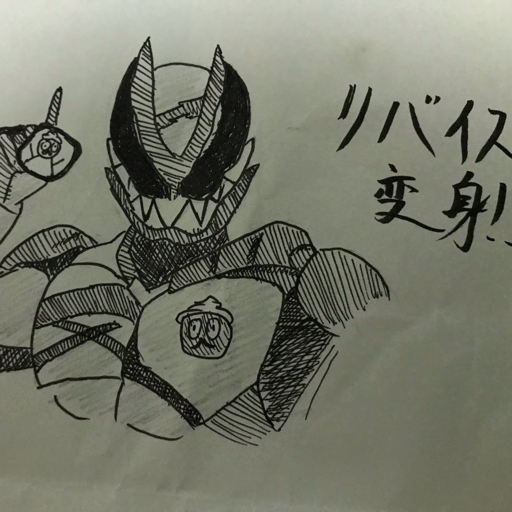 リバイス
変身!!